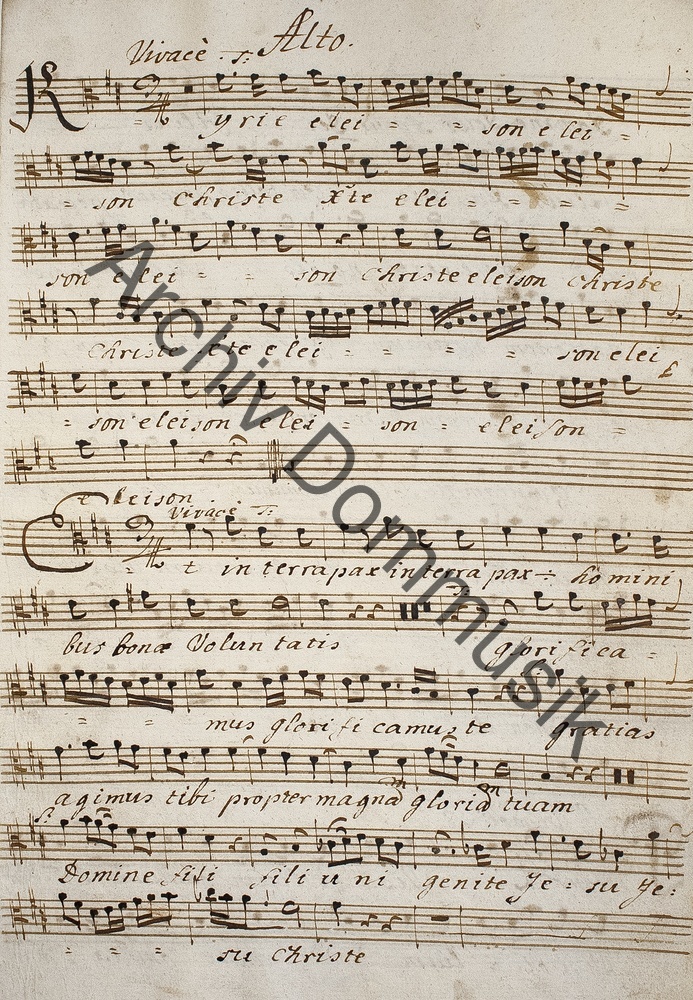 Alto.
Vivacè. S:
Kyrie elei = = son elei =
= son Christe Xte elei = = = =
son elei = = son Christe eleison Christe
Christe Xte elei = = = = son elei
= son eleison elei = son = eleison =
eleison
Vivacè S:
Et in terra pax in terra pax ÷ homini
bus bonæ Voluntatis glorifica =
= = mus glorificamus te gratias
agimus tibi propter magnam gloriam tuam
S.
Domine fili fili uni genite Je = su Je =
= = = su Christe
Archiv Dommusik